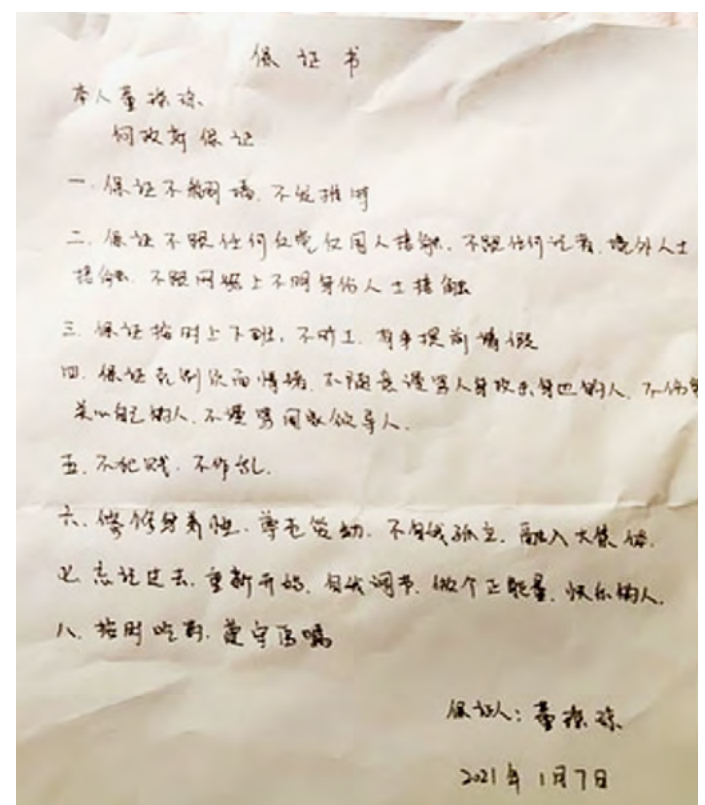 保证书
本人董瑶琼
向政府保证
一. 保证不翻墙. 不发推特
二. 保证不跟任何反党反国人接触. 不跟任何记者. 境外人士
接触. 不跟网络上不明身份人士接触
三. 保证按时上下班. 不旷工. 有事提前请假
四. 保证克制负面情绪. 不随意谩骂人身攻击身边的人. 不伤害
关心自己的人. 不谩骂国家领导人.
五. 不犯贱. 不作乱.
六. 修身养性. 尊老爱幼. 不自我孤立. 融入大集体.
七. 忘记过去. 重新开始. 自我调节. 做个正能量. 快乐的人.
八. 按时吃药. 遵守医嘱
保证人: 董瑶琼
2021年1月7日